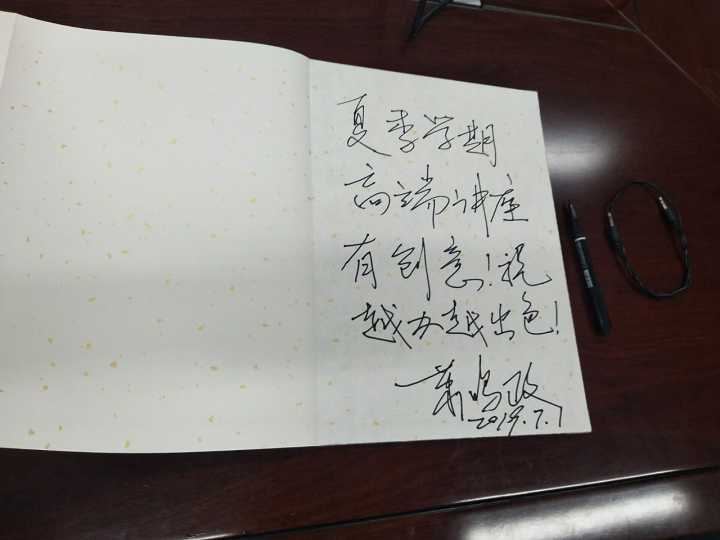 夏季学期
高端讲座
有创意!祝
越办越出色!
萧鸣政
2019.7.1